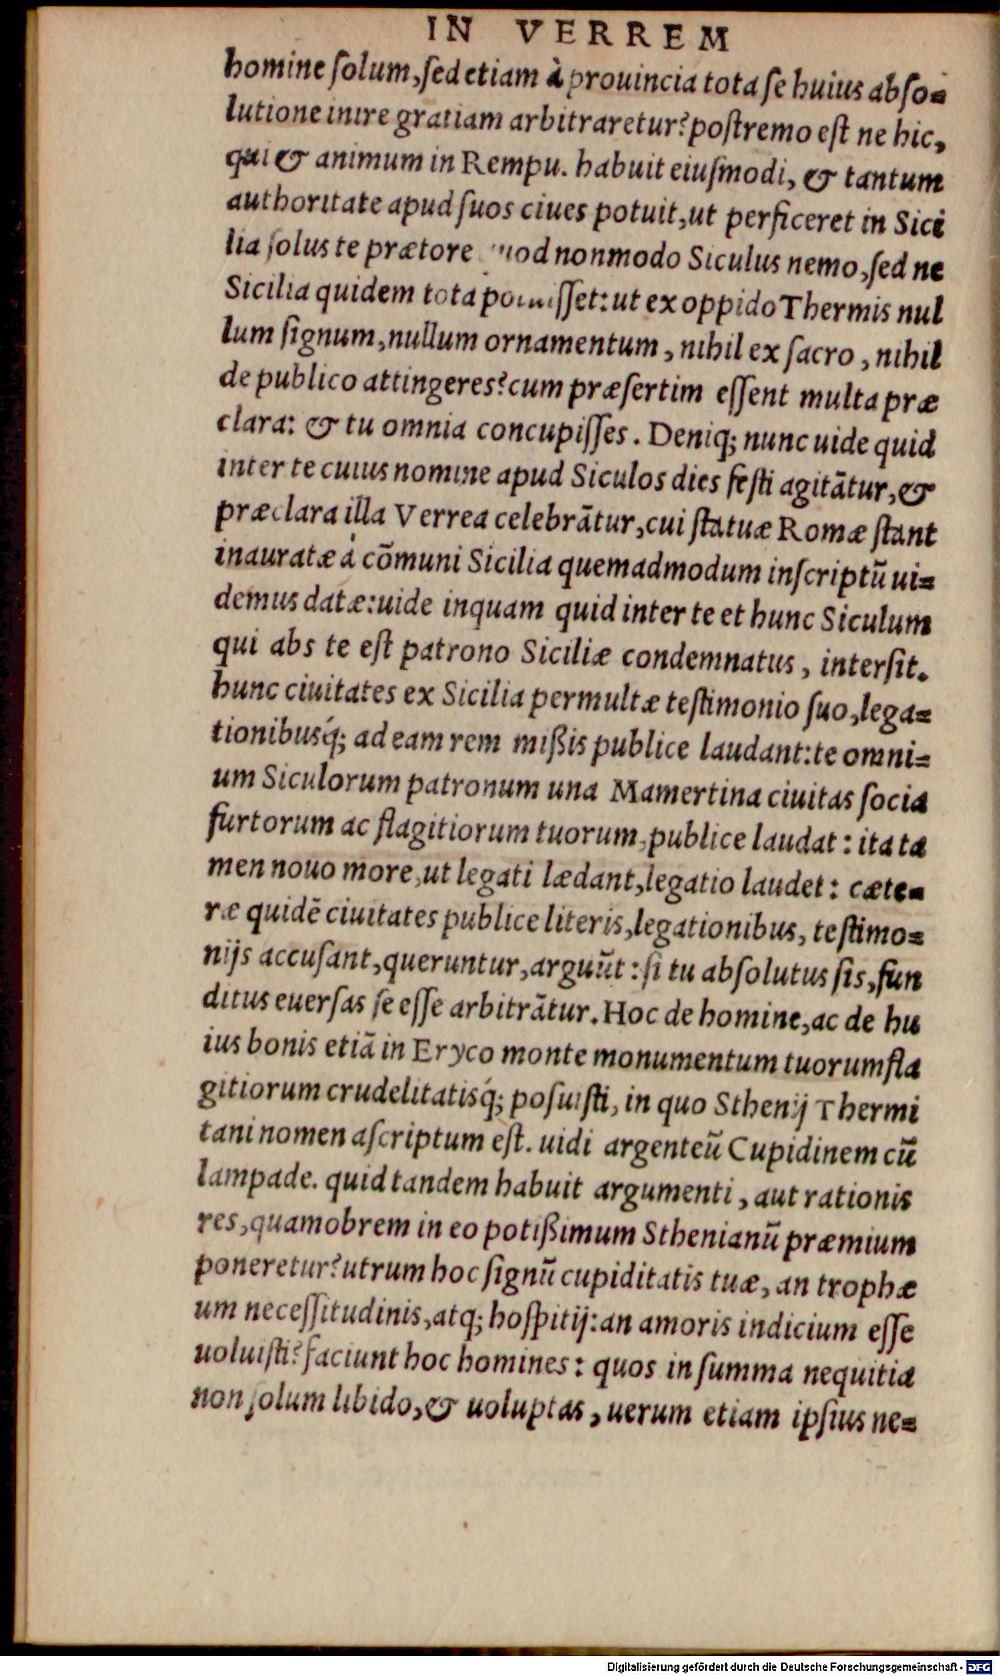 IN VERREM
homine ſolum, ſed etiam à prouincia tota ſe huius abſo-
lutione inire gratiam arbitraretur? poſtremo eſt ne hic,
qui & animum in Rempu. habuit eiuſmodi, & tantum
authoritate apud ſuos ciues potuit, ut perficeret in Sici
lia ſolus te prætore nonmodo Siculus nemo, ſed ne
Sicilia quidem tota potuiſſet: ut ex oppido Thermis nul
lum ſignum, nullum ornamentum, nihil ex ſacro, nihil
de publico attingeres? cum præſertim eſſent multa præ
clara: & tu omnia concupiſſes. Deniq; nunc uide quid
inter te cuius nomine apud Siculos dies feſti agitātur, &
præclara illa Verrea celebrātur, cui ſtatuæ Romæ ſtant
inauratæ à cōmuni Sicilia quemadmodum inſcriptū ui-
demus datæ: uide inquam quid inter te et hunc Siculum
qui abs te eſt patrono Siciliæ condemnatus, interſit.
hunc ciuitates ex Sicilia permultæ teſtimonio ſuo, lega-
tionibusq́; ad eam rem mißis publice laudant: te omni-
um Siculorum patronum una Mamertina ciuitas ſocia
furtorum ac flagitiorum tuorum, publice laudat: ita ta
men nouo more, ut legati lædant, legatio laudet: cæte-
ræ quidē ciuitates publice literis, legationibus, teſtimo-
nijs accuſant, queruntur, arguūt: ſi tu abſolutus ſis, fun
ditus euerſas ſe eſſe arbitrātur. Hoc de homine, ac de hu
ius bonis etiā in Eryco monte monumentum tuorum fla
gitiorum crudelitatisq́; poſuiſti, in quo Sthenij Thermi
tani nomen aſcriptum eſt. uidi argenteū Cupidinem cū
lampade. quid tandem habuit argumenti, aut rationis
res, quamobrem in eo potißimum Sthenianū præmium
poneretur? utrum hoc ſignū cupiditatis tuæ, an trophæ
um neceſſitudinis, atq; hoſpitij: an amoris indicium eſſe
uoluiſti? faciunt hoc homines: quos in ſumma nequitia
non ſolum libido, & uoluptas, uerum etiam ipſius ne-
Digitalisierung gefördert durch die Deutsche Forschungsgemeinschaft - DFG